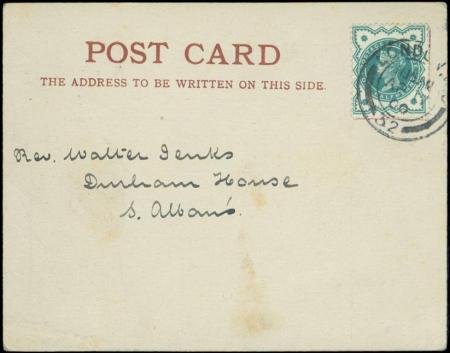 POST CARD
THE ADDRESS TO BE WRITTEN ON THIS SIDE.
Rev. Walter Jenks
Durham House
S. Albans.
52